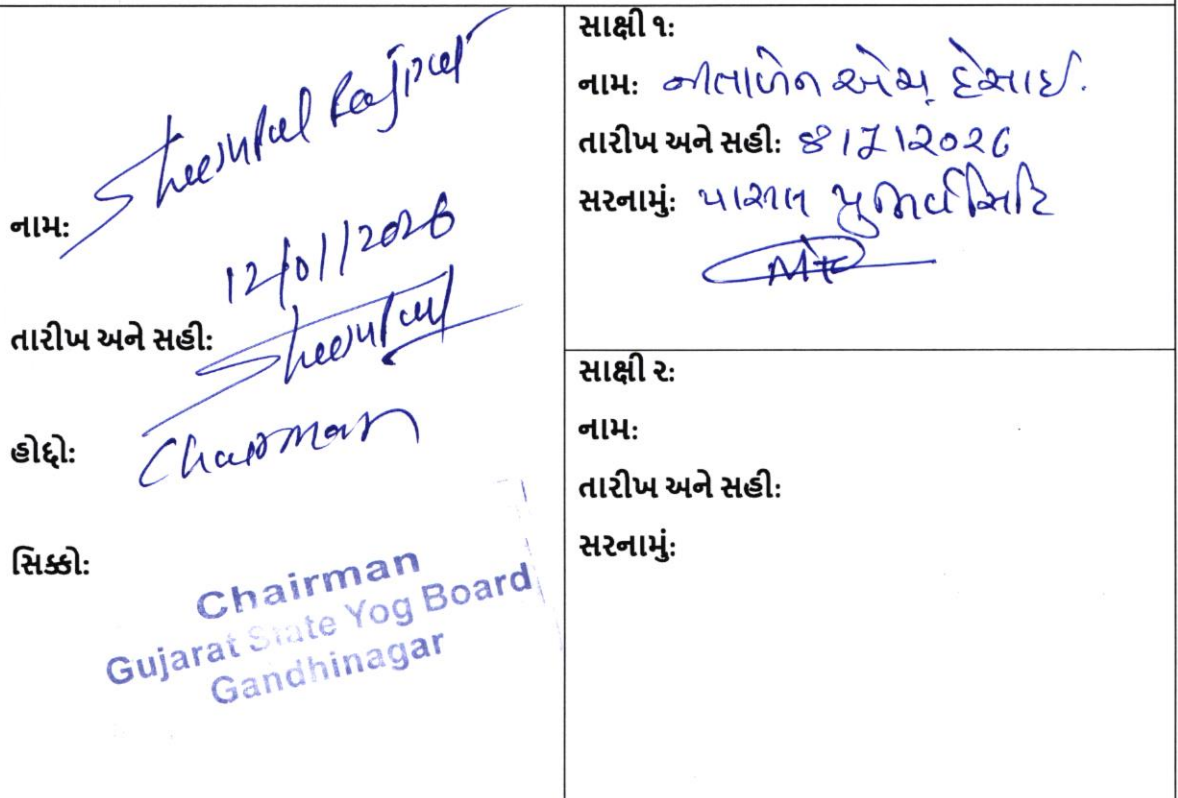 નામ: Sheeshpal Rajput
તારીખ અને સહી: 12/01/2026
Sheeshpal
હોદ્દો: Chairman
સિક્કો:
Chairman
Gujarat State Yog Board
Gandhinagar
સાક્ષી ૧:
નામ: નીતાબેન એચ દેસાઈ.
તારીખ અને સહી: 2026
સરનામું: પારૂલ યુનિવર્સિટિ
સાક્ષી ૨:
નામ:
તારીખ અને સહી:
સરનામું: